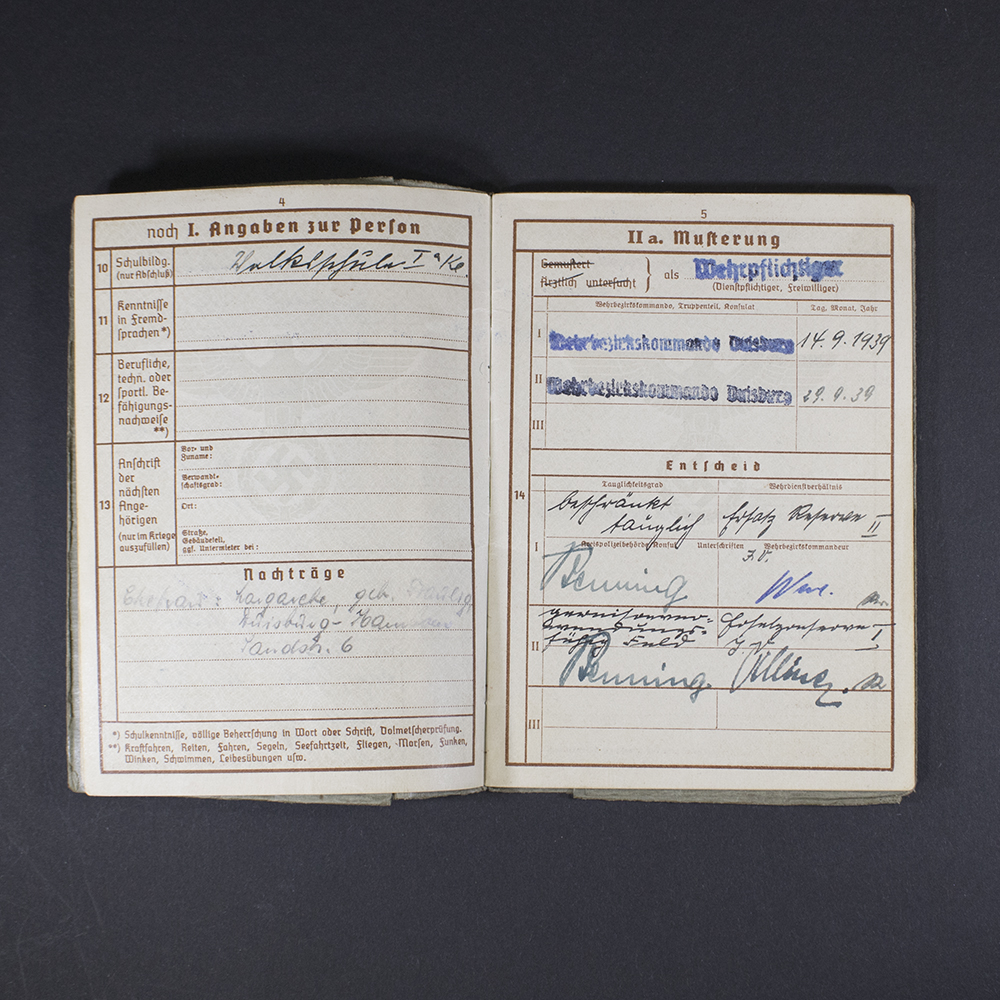 4
noch I. Angaben zur Person
10 Schulbildg. (nur Abschluß)
Volksschule I a Kl.
11 Kenntnisse in Fremd-
sprachen *)
12 Berufliche,
techn. oder
sportl. Be-
fähigungs-
nachweise
**)
13 Anschrift
der
nächsten
Ange-
hörigen
(nur im Kriege
auszufüllen)
Vor- und
Zuname:
Verwandt-
schaftsgrad:
Ort:
Straße,
Gebäudeteil,
ggf. Untermieter bei:
Nachträge
Ehefrau: geb.
Duisburg-Hamborn
Sandstr. 6
*) Schulkenntnisse, völlige Beherrschung in Wort oder Schrift, Dolmetscherprüfung.
**) Kraftfahren, Reiten, Fahren, Segeln, Seefahrtzeit, Fliegen, Morsen, Funken,
Winken, Schwimmen, Leibesübungen usw.
5
IIa. Musterung
Gemustert
Ärztlich untersucht } als Wehrpflichtiger
(Dienstpflichtiger, Freiwilliger)
Wehrbezirkskommando, Truppenteil, Konsulat Tag, Monat, Jahr
I Wehrbezirkskommando Duisburg 14.9.1939
II Wehrbezirkskommando Duisburg 29.9.39
III
Entscheid
14 Tauglichkeitsgrad Wehrdienstverhältnis
beschränkt
tauglich Ersatz Reserve II
I Kreispolizeibehörde/Konsul Unterschriften Wehrbezirkskommandeur
J.V.
Benning
garnisonver-
wendungs- Ersatzreserve I
II fähig Feld J.V.
Benning
III